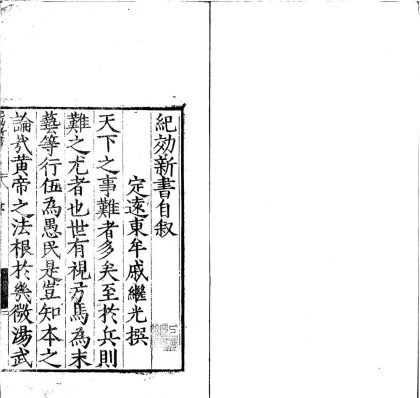 紀効新書自叙
定遠東牟戚繼光撰
天下之事難者多矣至於兵則
難之尤者也世有視弓馬為末
藝等行伍為愚民是豈知本之
論哉黄帝之法根於幾微湯武